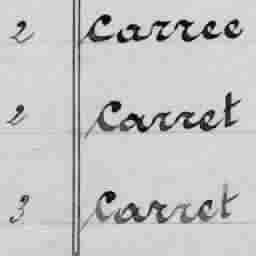 2 Carree
2 Carret
3 Carret